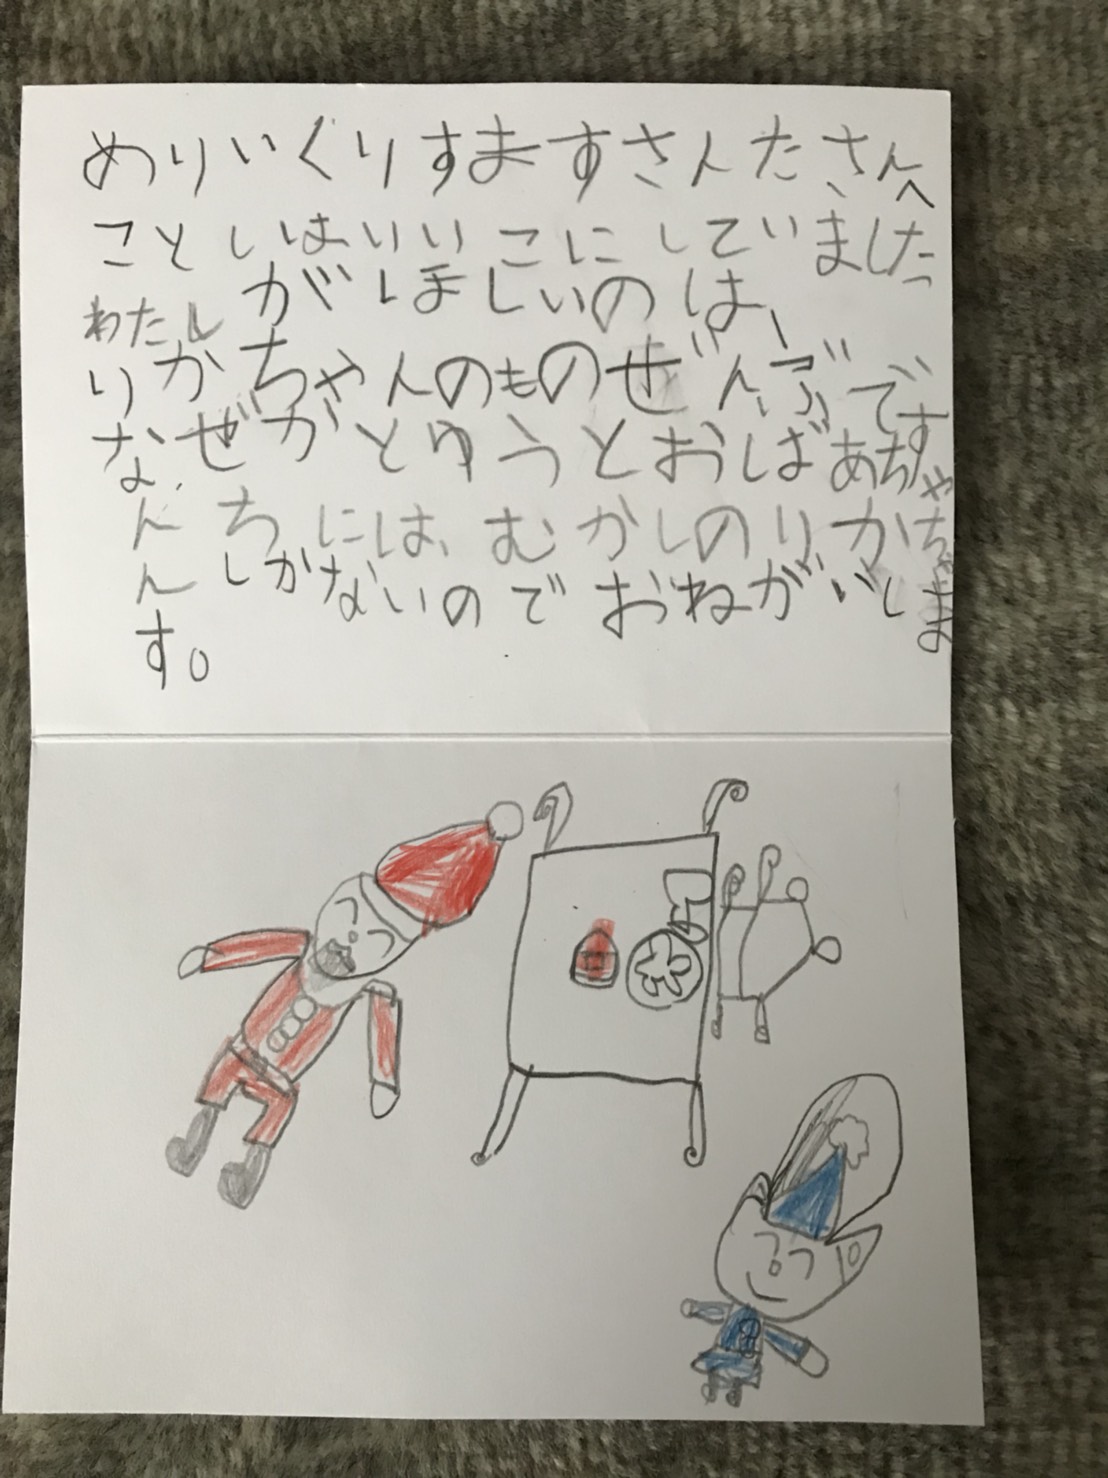 めりいくりすますさんたさんへ
ことしはいいこにしていました
わたしがほしいのは、
りかちゃんのものぜんぶです
なぜがとゆうとおばあちゃ
んちにには、むかしのりかちゃ
んしかないのでおねがいしま
す。